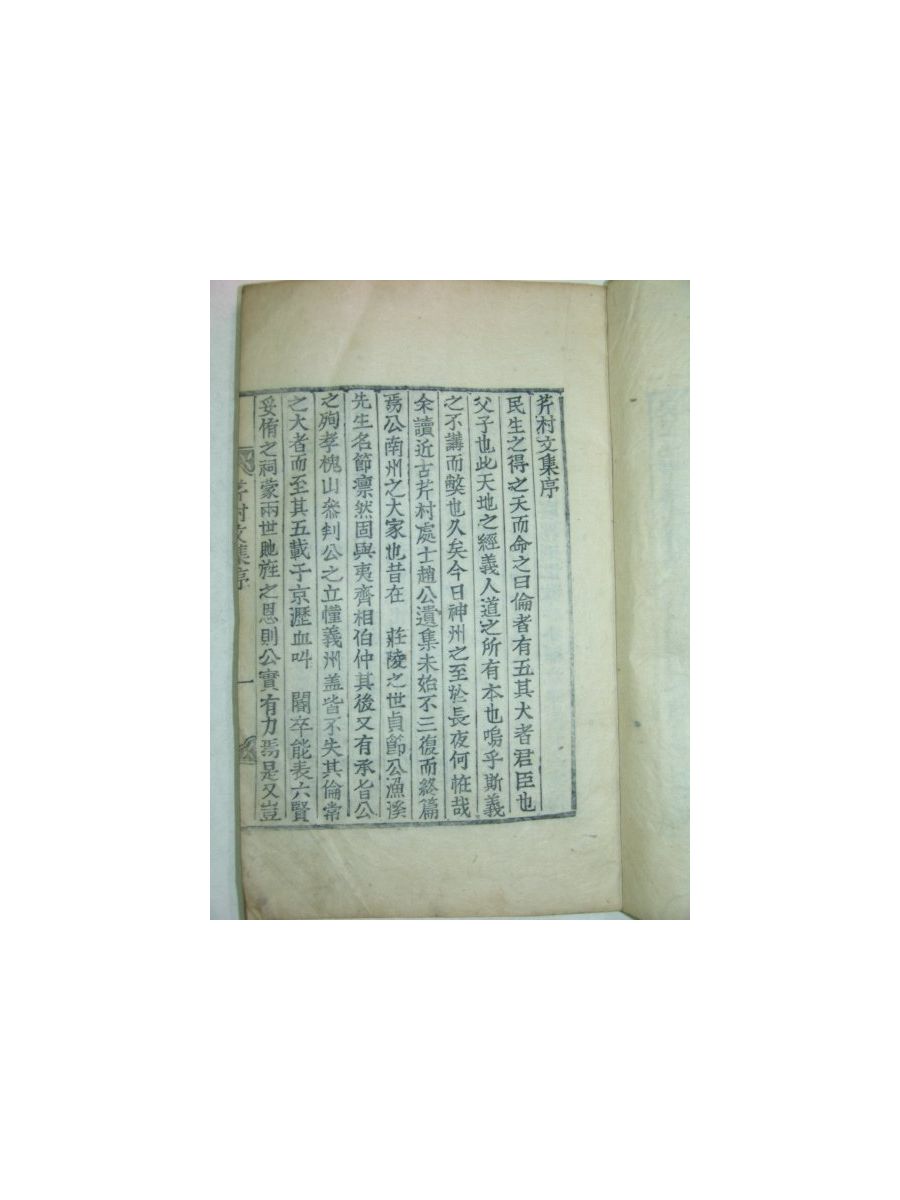 芹村文集序
民生之得之天而命之曰倫者有五其大者君臣也
父子也此天地之經義人道之所有本也嗚乎斯義
之不講而獘也久矣今日神州之至於長夜何恠哉
余讀近古芹村處士趙公遺集未始不三復而終篇
焉公南州之大家也昔在　莊陵之世貞節公漁溪
先生名節凛然固與夷齊相伯仲其後又有承旨公
之殉孝槐山叅判公之立慬義州盖皆不失其倫常
之大者而至其五載于京瀝血叫　閽卒能表六賢
妥侑之祠蒙兩世貤旌之恩則公實有力焉是又豈
芹村文集序　一